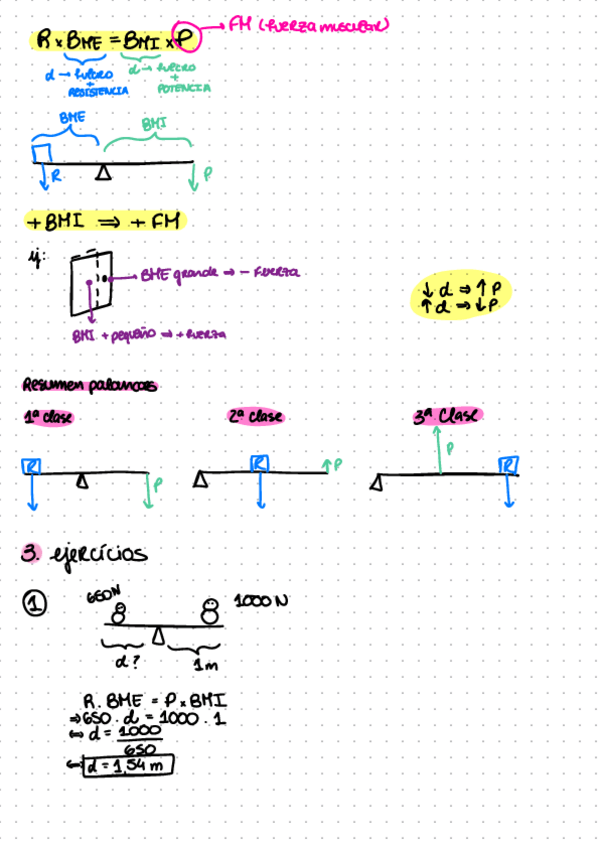 R x BME = BMI x P → FM (fuerza muscular)
d → fulcro + RESISTENCIA
d → fulcro + POTENCIA
BME
BMI
R
P
+ BMI ⇒ + FM
ej:
BME grande ⇒ - fuerza
BMI + pequeño ⇒ + fuerza
↓ d ⇒ ↑ P
↑ d ⇒ ↓ P
Resumen palancas
1ª clase
2ª clase
3ª clase
R
P
R
P
P
R
3. ejercícios
1
650N
1000 N
d?
1m
R. BME = P x BMI
⇒ 650 . d = 1000 . 1
⇔ d = 1000 / 650
⇔ d = 1,54 m